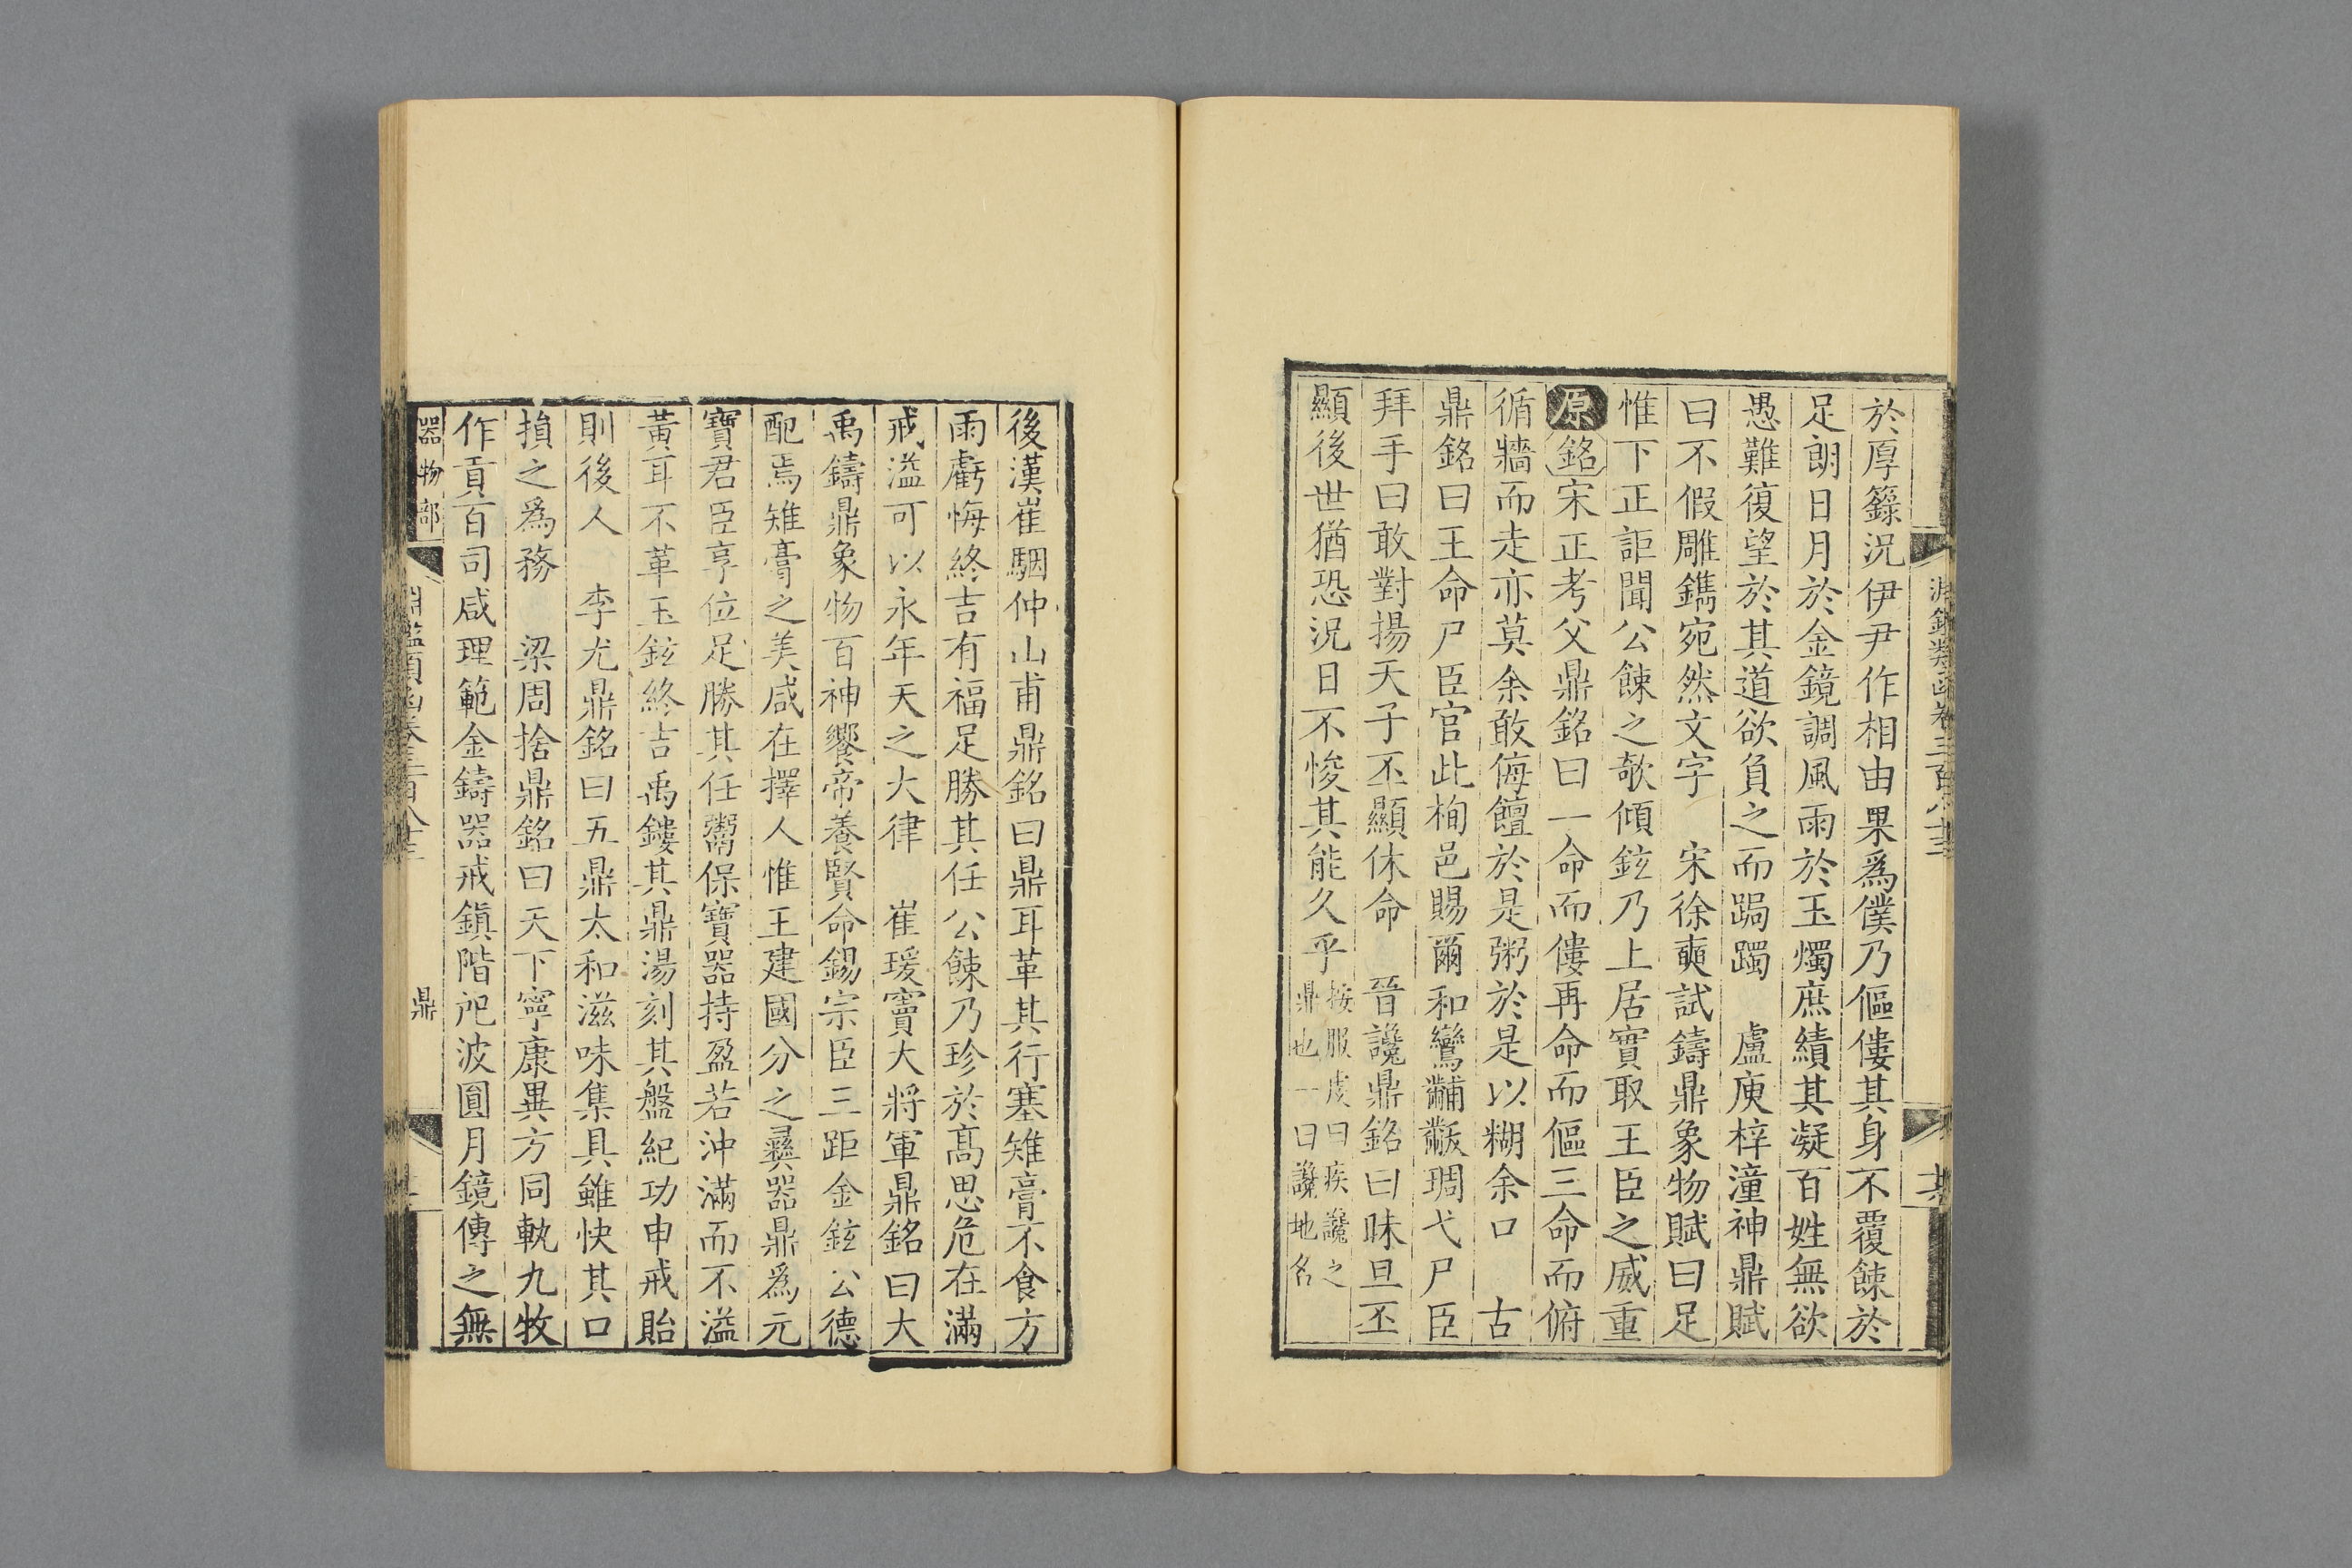 於厚籙況伊尹作相由果爲僕乃傴僂其身不覆餗於
足朗日月於金鏡調風雨於玉燭庶績其凝百姓無欲
愚難復望於其道欲負之而跼躅　盧庾梓潼神鼎賦
曰不假雕鐫宛然文字　宋徐奭試鑄鼎象物賦曰足
惟下正詎聞公餗之欹傾鉉乃上居實取王臣之威重
原銘宋正考父鼎銘曰一命而僂再命而傴三命而俯
循牆而走亦莫余敢侮饘於是粥於是以糊余口　古
鼎銘曰王命尸臣官此栒邑賜爾和鸞黼黻琱戈尸臣
拜手曰敢對揚天子丕顯休命　晉讒鼎銘曰昧旦丕
顯後世猶恐況日不悛其能久乎按服虔曰疾讒之鼎也一曰讒地名
後漢崔駰仲山甫鼎銘曰鼎耳革其行塞雉膏不食方
雨虧悔終吉有福足勝其任公餗乃珍於高思危在滿
戒溢可以永年天之大律　崔瑗竇大將軍鼎銘曰大
禹鑄鼎象物百神饗帝養賢命錫宗臣三距金鉉公德
配焉雉膏之美咸在擇人惟王建國分之彞器鼎爲元
寶君臣享位足勝其任鬻保寶器持盈若沖滿而不溢
黃耳不革玉鉉終吉禹鏤其鼎湯刻其盤紀功申戒貽
則後人　李尤鼎銘曰五鼎太和滋味集具雖快其口
損之爲務　梁周捨鼎銘曰天下寧康異方同軌九牧
作貢百司咸理範金鑄器戒鎮階祀波圓月鏡傳之無
器物部
淵鑑類函卷三百八十三
鼎